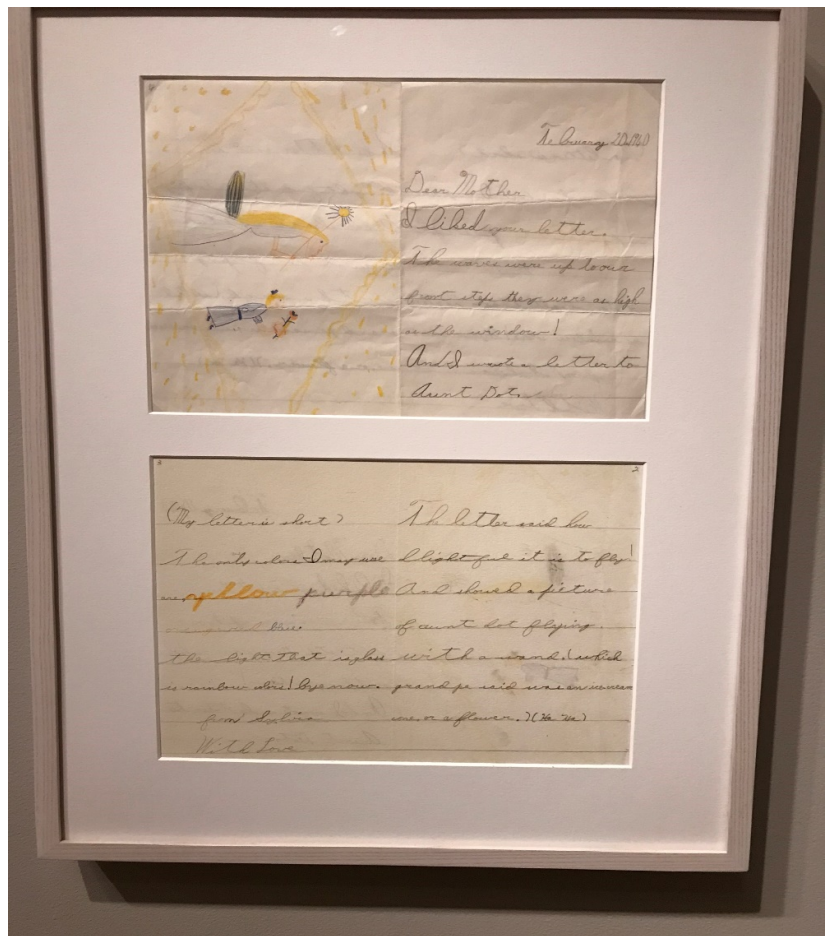 Dear Mother
I liked your letter.
The waves were up to our
front steps they were as high
as the window!
And I wrote a letter to
Aunt Dot.
(My letter is short)
The only colors I may use
are, yellow purple
blue.
the light that is glass
is rainbow colors! bye now.
from Sylvia
With Love
The letter said how
dlightful it is to fly!
And showed a picture
of aunt dot flying
with a wand! (which
grandpa said was an
or a flower.) (Ha Ha)